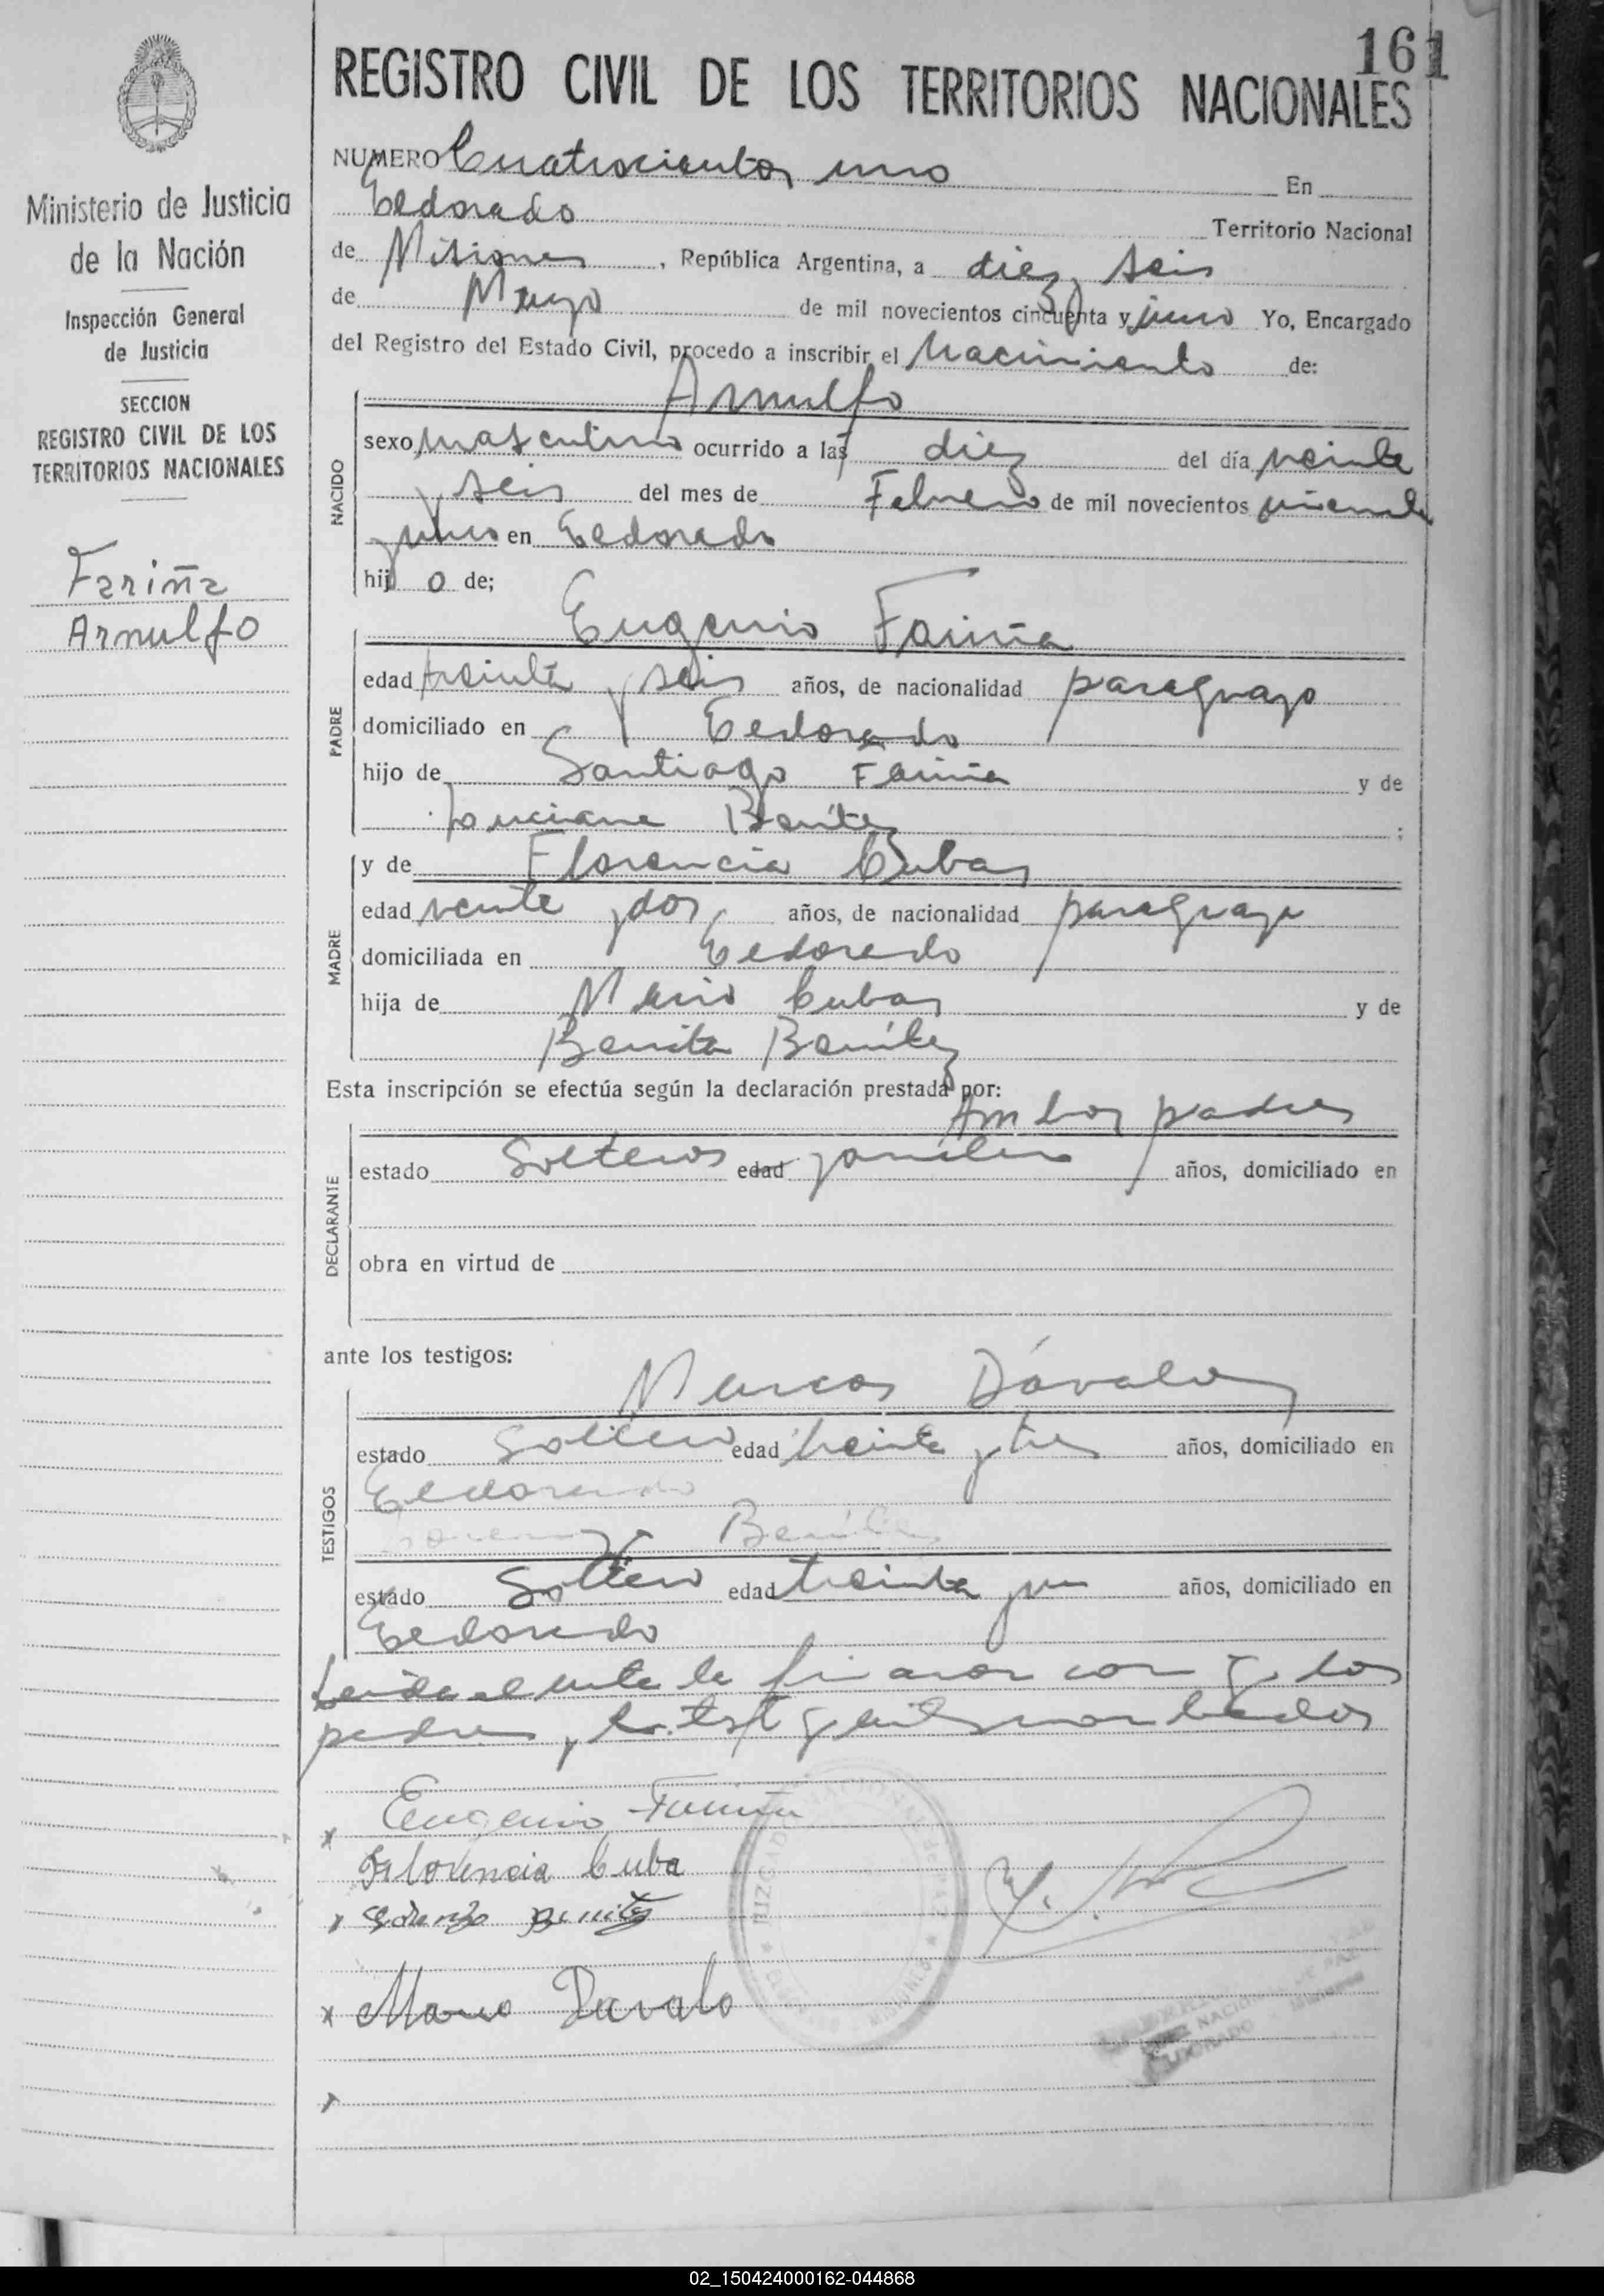 161
REGISTRO CIVIL DE LOS TERRITORIOS NACIONALES
Ministerio de Justicia
de la Nación
Inspección General
de Justicia
SECCION
REGISTRO CIVIL DE LOS
TERRITORIOS NACIONALES
Fariña
Arnulfo
NUMERO Cuatrocientos uno En
Eldorado Territorio Nacional
de Misiones, República Argentina, a diez y seis
de Mayo de mil novecientos cincuenta y uno Yo, Encargado
del Registro del Estado Civil, procedo a inscribir el Nacimiento de:
NACIDO
Arnulfo
sexo masculino ocurrido a las diez del día veinte
y seis del mes de Febrero de mil novecientos
y uno en Eldorado
hijo de;
PADRE
Eugenio Fariña
edad treinta y seis años, de nacionalidad paraguayo
domiciliado en Eldorado
hijo de Santiago Fariña y de
Luciana Benítez;
MADRE
y de Florencia Cubas
edad veinte y dos años, de nacionalidad paraguaya
domiciliada en Eldorado
hija de Mario Cubas y de
Benita Benítez
Esta inscripción se efectúa según la declaración prestada por:
DECLARANTE
Ambos padres
estado Solteros edad años, domiciliado en
obra en virtud de
ante los testigos:
TESTIGOS
Marcos Dávalos
estado Soltero edad treinta y tres años, domiciliado en
Eldorado
Lorenzo Benítez
estado Soltero edad treinta y un años, domiciliado en
Eldorado
Leida el acta la firman con los
padres y los test
x Eugenio Fariña
Florencia Cuba
Benites
x Davalo
JUZGADO
NACIONAL DE PAZ
ELDORADO
02_150424000162-044868